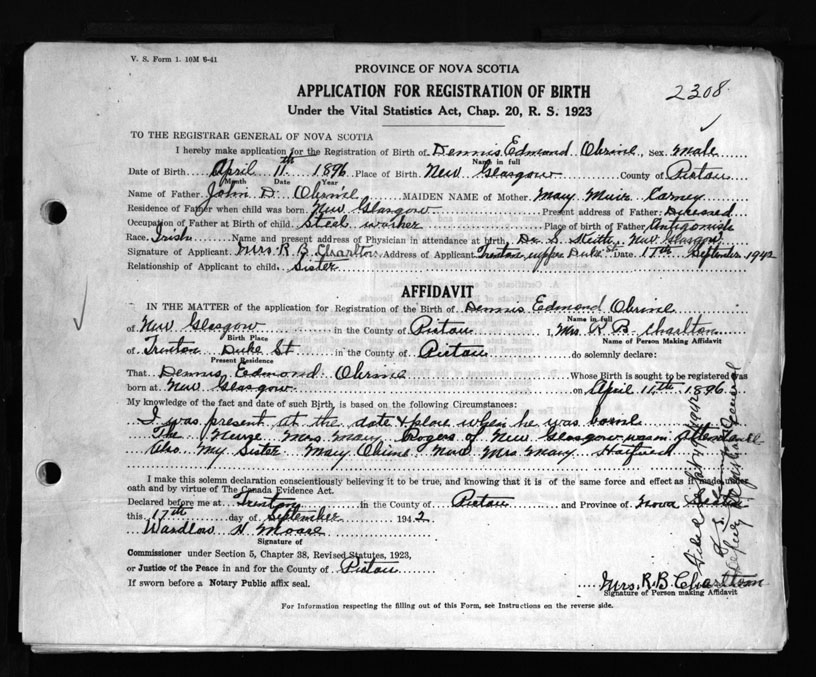 V. S. Form 1. 10M 6-41
PROVINCE OF NOVA SCOTIA
2308
APPLICATION FOR REGISTRATION OF BIRTH
Under the Vital Statistics Act, Chap. 20, R. S. 1923
TO THE REGISTRAR GENERAL OF NOVA SCOTIA
I hereby make application for the Registration of Birth of Dennis Edmond Obrine, Sex Male
Name in full
Date of Birth April 11th 1896 Place of Birth New Glasgow County of Pictou
Month Date Year
Name of Father John D. Obrine MAIDEN NAME of Mother Mary Muir Carney
Residence of Father when child was born New Glasgow Present address of Father Diseased
Occupation of Father at Birth of child Steel worker Place of birth of Father Antigonish
Race Irish Name and present address of Physician in attendance at birth Dr. S. New Glasgow
Signature of Applicant Mrs. R. B. Charlton Address of Applicant Trenton Duke St Date 17th September 1942
Relationship of Applicant to child Sister
AFFIDAVIT
IN THE MATTER of the application for Registration of the Birth of Dennis Edmond Obrine
Name in full
of New Glasgow in the County of Pictou I, Mrs R B Charlton
Birth Place Name of Person Making Affidavit
of Trenton Duke St in the County of Pictou do solemnly declare:
Present Residence
That Dennis Edmond Obrine Whose Birth is sought to be registered was
born at New Glasgow on April 11th 1896
My knowledge of the fact and date of such Birth, is based on the following Circumstances:
I was present at the date & place when he was borne
The Nurse Mrs. Mary Rogers of New Glasgow was in attendance
Also My Sister Mary Obrine Now Mrs. Mary Hatfield
I make this solemn declaration conscientiously believing it to be true, and knowing that it is of the same force and effect as if made under
oath and by virtue of The Canada Evidence Act.
Declared before me at Trenton in the County of Pictou and Province of Nova Scotia
this 17th day of September 1942
Wardlow N Moore
Signature of
Commissioner under Section 5, Chapter 38, Revised Statutes, 1923,
or Justice of the Peace in and for the County of Pictou
If sworn before a Notary Public affix seal.
Mrs. R. B. Charlton
Signature of Person making Affidavit
For Information respecting the filling out of this Form, see Instructions on the reverse side.
Deputy Registrar General